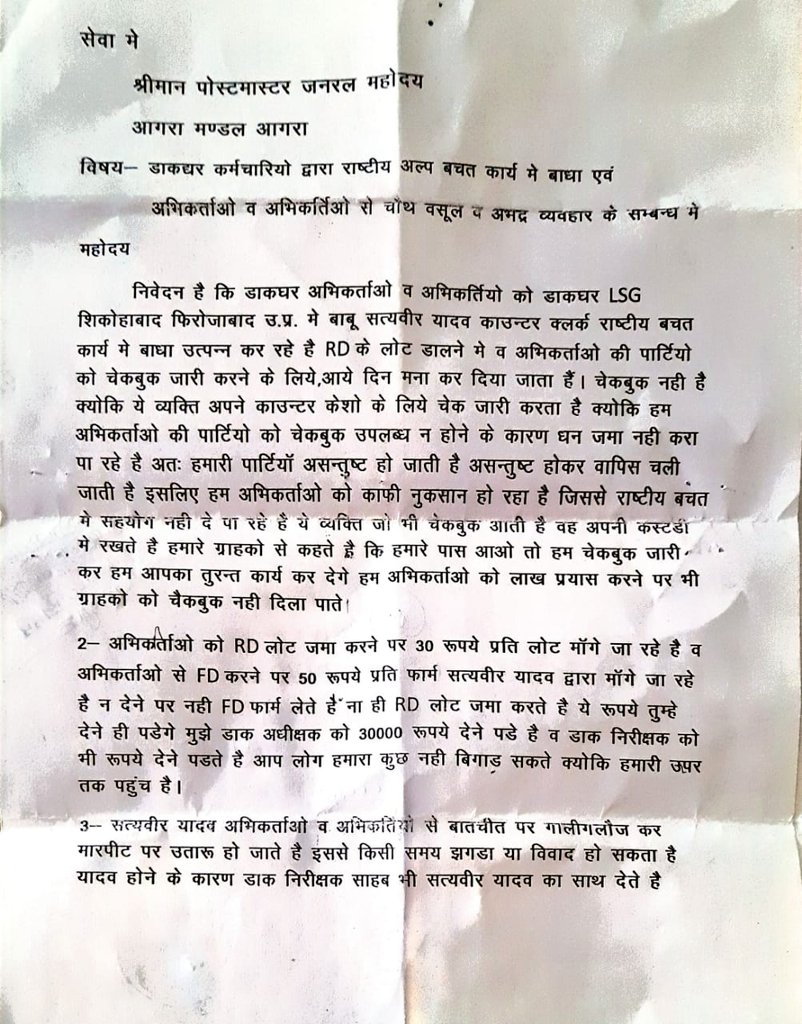 सेवा मे
श्रीमान पोस्टमास्टर जनरल महोदय
आगरा मण्डल आगरा
विषय– डाकघर कर्मचारियो द्वारा राष्टीय अल्प बचत कार्य मे बाधा एवं
अभिकर्ताओ व अभिकर्तिओ से चौथ वसूल व अभद्र व्यवहार के सम्बन्ध मे
महोदय
निवेदन है कि डाकघर अभिकर्ताओ व अभिकर्तियो को डाकघर LSG
शिकोहाबाद फिरोजाबाद उ.प्र. मे बाबू सत्यवीर यादव काउन्टर क्लर्क राष्टीय बचत
कार्य मे बाधा उत्पन्न कर रहे है RD के लोट डालने मे व अभिकर्ताओ की पार्टियो
को चेकबुक जारी करने के लिये,आये दिन मना कर दिया जाता हैं। चेकबुक नही है
क्योकि ये व्यक्ति अपने काउन्टर केशो के लिये चेक जारी करता है क्योकि हम
अभिकर्ताओ की पार्टियो को चेकबुक उपलब्ध न होने के कारण धन जमा नही करा
पा रहे है अतः हमारी पार्टियॉ असन्तुष्ट हो जाती है असन्तुष्ट होकर वापिस चली
जाती है इसलिए हम अभिकर्ताओ को काफी नुकसान हो रहा है जिससे राष्टीय बचत
मे सहयोग नही दे पा रहे है ये व्यक्ति जो भी चेकबुक आती है वह अपनी कस्टडी
मे रखते है हमारे ग्राहको से कहते है कि हमारे पास आओ तो हम चेकबुक जारी
कर हम आपका तुरन्त कार्य कर देगे हम अभिकर्ताओ को लाख प्रयास करने पर भी
ग्राहको को चैकबुक नही दिला पाते।
2– अभिकर्ताओ को RD लोट जमा करने पर 30 रूपये प्रति लोट मॉगे जा रहे है व
अभिकर्ताओ से FD करने पर 50 रूपये प्रति फार्म सत्यवीर यादव द्वारा मॉगे जा रहे
है न देने पर नही FD फार्म लेते है ना ही RD लोट जमा करते है ये रूपये तुम्हे
देने ही पडेगे मुझे डाक अधीक्षक को 30000 रूपये देने पडे है व डाक निरीक्षक को
भी रूपये देने पडते है आप लोग हमारा कुछ नही बिगाड़ सकते क्योकि हमारी उपर
तक पहुंच है।
3– सत्यवीर यादव अभिकर्ताओ व अभिकर्तियो से बातचीत पर गालीगलौज कर
मारपीट पर उतारू हो जाते है इससे किसी समय झगडा या विवाद हो सकता है
यादव होने के कारण डाक निरीक्षक साहब भी सत्यवीर यादव का साथ देते है